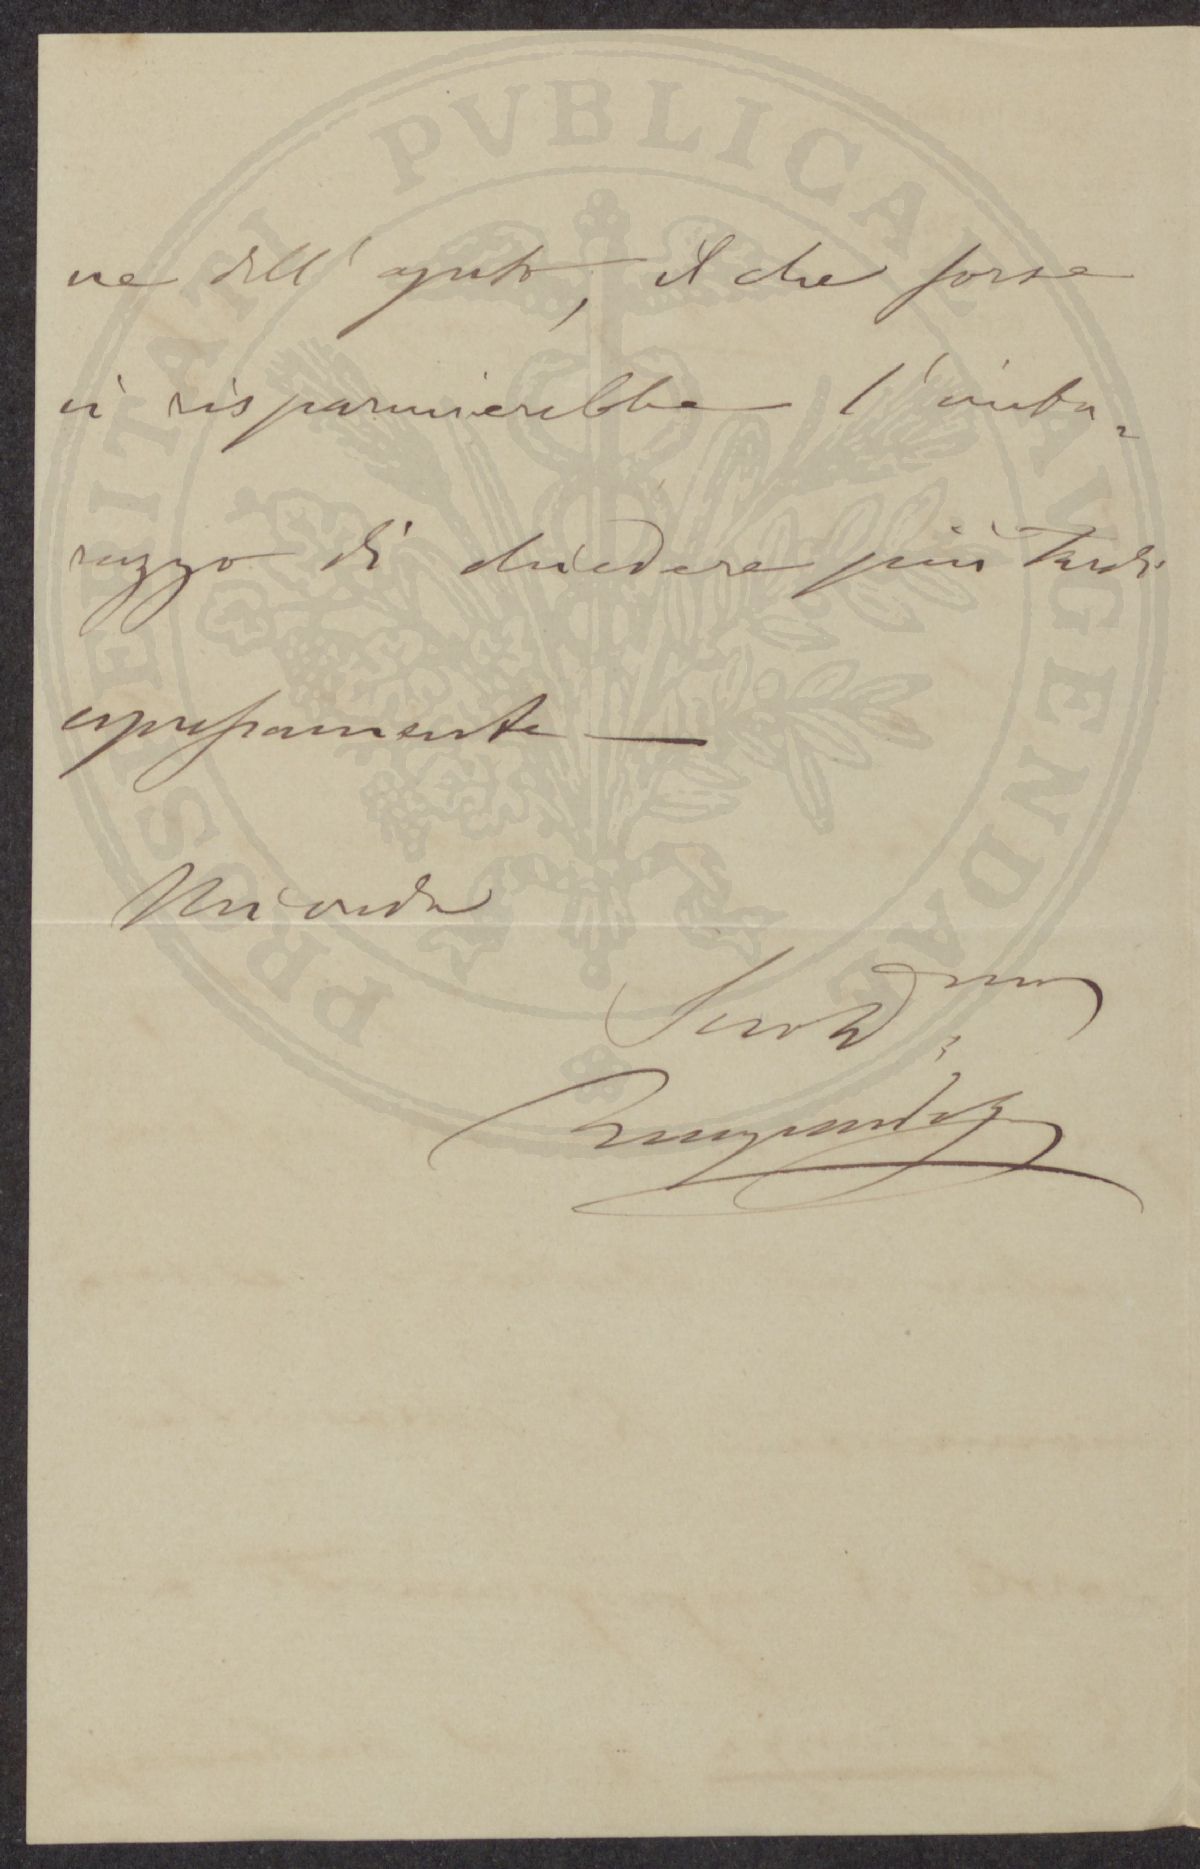 ne dell' ajuto, il che forse
ci risparmierebbe l'imba=
razzo di chiedere più tardi
espressamente —
Mi creda
PROSPERITATI PVBLICAE AVGENDAE